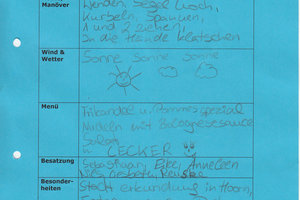 Manöver
Wenden, Segel hoch,
Kurbeln, Spannen,
1 und 2 ziehen,
In die Hände klatschen
Wind &
Wetter
Sonne Sonne Sonne
Menü
Frikandel u. Pommes spezial
Nudeln mit Bolognesesauce
Salat
LECKER
Besatzung
Sebastian, Eike, Anneleen
Nils,
Besonder-
heiten
Stadt erkundung in Hoorn,